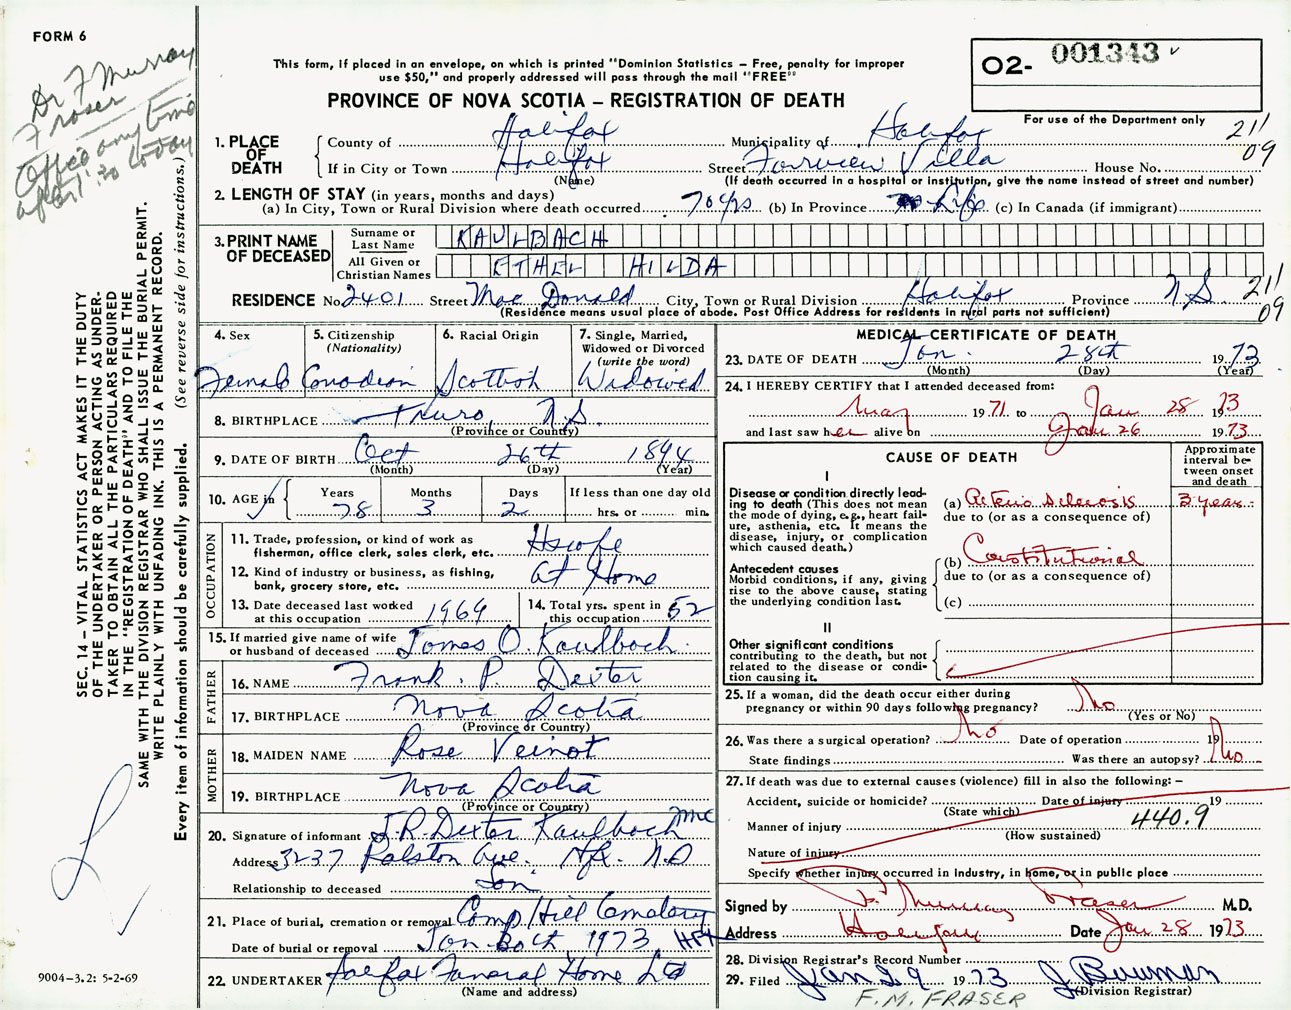 FORM 6
Dr F Murray
Fraser
Office any time
after today
This form, if placed in an envelope, on which is printed "Dominion Statistics – Free, penalty for improper
use $50," and properly addressed will pass through the mail "FREE"
PROVINCE OF NOVA SCOTIA – REGISTRATION OF DEATH
O2- 001343
For use of the Department only
211
09
1. PLACE OF DEATH
County of Halifax Municipality of Halifax
If in City or Town Halifax Street Fairview Villa House No.
(Name) (If death occurred in a hospital or institution, give the name instead of street and number)
2. LENGTH OF STAY (in years, months and days)
(a) In City, Town or Rural Division where death occurred 70 yrs (b) In Province Life (c) In Canada (if immigrant)
3. PRINT NAME OF DECEASED
Surname or Last Name KAULBACH
All Given or Christian Names ETHEL HILDA
RESIDENCE No. 2401 Street Mac Donald City, Town or Rural Division Halifax Province N.S 211
09
(Residence means usual place of abode. Post Office Address for residents in rural parts not sufficient)
4. Sex Female
5. Citizenship (Nationality) Canadian
6. Racial Origin Scottish
7. Single, Married, Widowed or Divorced (write the word) Widowed
8. BIRTHPLACE Truro, N.S.
(Province or Country)
9. DATE OF BIRTH Oct 26th 1894
(Month) (Day) (Year)
10. AGE in Years 78 Months 3 Days 2 If less than one day old hrs. or min.
OCCUPATION
11. Trade, profession, or kind of work as fisherman, office clerk, sales clerk, etc. Hswfe
12. Kind of industry or business, as fishing, bank, grocery store, etc. At Home
13. Date deceased last worked at this occupation 1969
14. Total yrs. spent in this occupation 52
15. If married give name of wife or husband of deceased James O. Kaulbach.
FATHER
16. NAME Frank. P. Dexter
17. BIRTHPLACE Nova Scotia
(Province or Country)
MOTHER
18. MAIDEN NAME Rose Veinot
19. BIRTHPLACE Nova Scotia
(Province or Country)
20. Signature of informant J.R. Dexter Kaulbach
Address 3237 Ralston Ave. Hfx. N.S
Relationship to deceased Son
21. Place of burial, cremation or removal Camp Hill Cemetary
Date of burial or removal Jan 30th 1973 Hfx
22. UNDERTAKER Halifax Funeral Home Ltd
(Name and address)
MEDICAL CERTIFICATE OF DEATH
23. DATE OF DEATH Jan. 28th 1973
(Month) (Day) (Year)
24. I HEREBY CERTIFY that I attended deceased from:
May 1971 to Jan 28 1973
and last saw her alive on Jan 26 1973
CAUSE OF DEATH
Approximate interval between onset and death
I
Disease or condition directly leading to death (This does not mean the mode of dying, e.g., heart failure, asthenia, etc. It means the disease, injury, or complication which caused death.)
(a) Arterio sclerosis 3 years
due to (or as a consequence of)
Antecedent causes
Morbid conditions, if any, giving rise to the above cause, stating the underlying condition last.
(b) Constitutional
due to (or as a consequence of)
(c)
II
Other significant conditions
contributing to the death, but not related to the disease or condition causing it.
25. If a woman, did the death occur either during pregnancy or within 90 days following pregnancy? No
(Yes or No)
26. Was there a surgical operation? No Date of operation 19
State findings Was there an autopsy? No
27. If death was due to external causes (violence) fill in also the following: –
Accident, suicide or homicide? Date of injury 19
(State which)
Manner of injury 440.9
(How sustained)
Nature of injury
Specify whether injury occurred in industry, in home, or in public place
Signed by F. Murray Fraser M.D.
Address Halifax Date Jan 28 1973
28. Division Registrar's Record Number
29. Filed Jan 29 1973 J Bowman
(Division Registrar)
F.M. FRASER
SEC. 14 – VITAL STATISTICS ACT MAKES IT THE DUTY
OF THE UNDERTAKER OR PERSON ACTING AS UNDER-
TAKER TO OBTAIN ALL THE PARTICULARS REQUIRED
IN THE "REGISTRATION OF DEATH" AND TO FILE THE
SAME WITH THE DIVISION REGISTRAR WHO SHALL ISSUE THE BURIAL PERMIT.
WRITE PLAINLY WITH UNFADING INK. THIS IS A PERMANENT RECORD.
Every item of information should be carefully supplied. (See reverse side for instructions.)
9004-3.2: 5-2-69